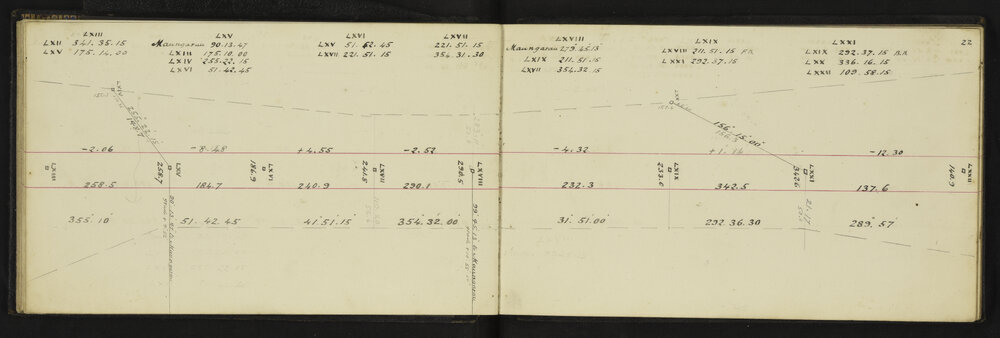 LXIII
LXII 341.35.15
LXV 175.14.00
LXV
Maungarau 90.13.47
LXIII 175.10.00
LXIV 255.22.15
LXVI 51.42.45
LXVI
LXV 51.52.45
LXVII 221.51.15
LXVII
221.51.15
354.31.30
LXVIII
Maungarau 279.45.13
LXIX 211.51.15
LXVII 354.32.15
LXIX
LXVIII 211.51.15 B.B.
LXXI 292.37.15
LXXI
LXIX 292.37.15 B.B.
LXX 336.16.15
LXXII 109.58.15
22
LXIV
LXX
156.15.00
-2.06
-8.48
+4.55
-2.52
-4.32
+1.14
-12.30
LXIII
LXV
258.7
LXVI
186.9
LXVII
244.8
LXVIII
290.5
LXIX
233.0
LXXI
342.6
LXXII
140.9
258.5
184.7
240.9
290.1
232.3
342.5
137.6
355.10
51.42.45
41.51.15
354.32.00
31.51.00
292.36.30
289.57